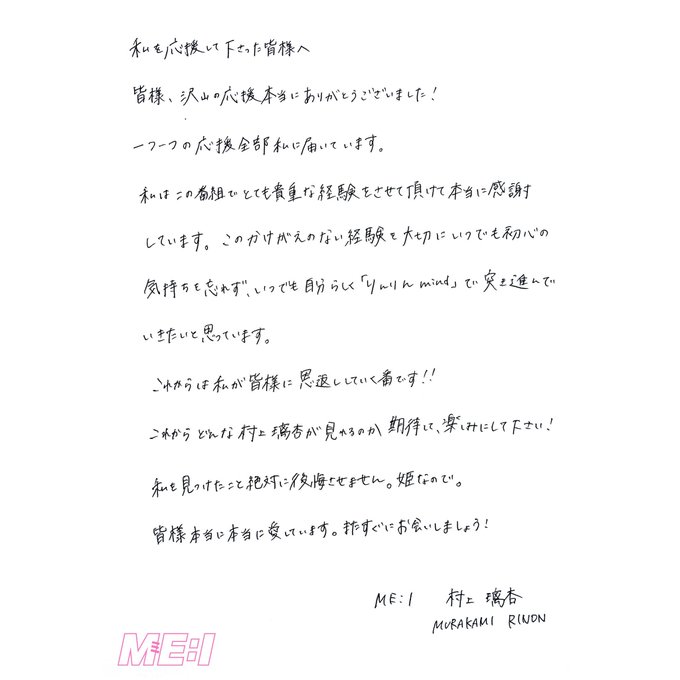 私を応援して下さった皆様へ
皆様、沢山の応援本当にありがとうございました!
一つ一つの応援全部私に届いています。
私はこの番組でとても貴重な経験をさせて頂けて本当に感謝
しています。このかけがえのない経験を大切にいつでも初心の
気持ちを忘れず、いつでも自分らしく「りんりんmind」で突き進んで
いきたいと思っています。
これからは私が皆様に恩返ししていく番です!!
これからどんな村上璃杏が見れるのか期待して、楽しみにして下さい!
私を見つけたこと絶対に後悔させません。姫なので。
皆様本当に本当に愛しています。またすぐにお会いしましょう!
ME:I 村上璃杏
MURAKAMI RINON
ME:I